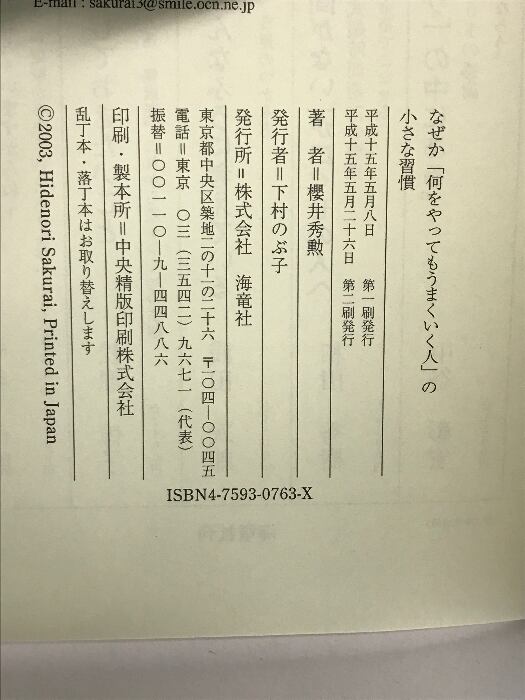 E-mail : sakurai3@smile.ocn.ne.jp
なぜか「何をやってもうまくいく人」の
小さな習慣
平成十五年五月八日 第一刷発行
平成十五年五月二十六日 第二刷発行
著 者＝櫻井秀勲
発行者＝下村のぶ子
発行所＝株式会社 海竜社
東京都中央区築地二の十一の二十六 〒一〇四―〇〇四五
電話＝東京 〇三（三五四二）九六七一（代表）
振替＝〇〇一一〇―九―四四八八六
印刷・製本所＝中央精版印刷株式会社
乱丁本・落丁本はお取り替えします
©2003, Hidenori Sakurai, Printed in Japan
ISBN4-7593-0763-X